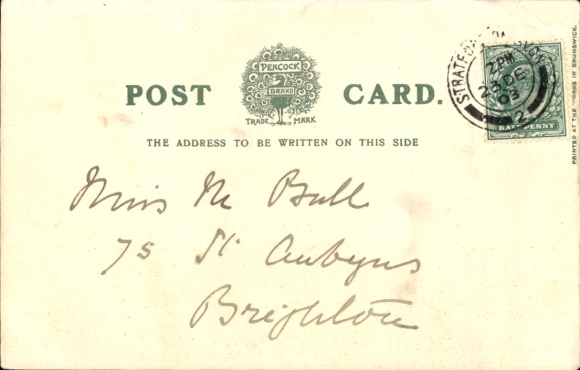 PEACOCK
BRAND
TRADE MARK
POST CARD.
THE ADDRESS TO BE WRITTEN ON THIS SIDE
STRATFORD ON AVON
7 PM
DE
03
2
HALFPENNY
PRINTED AT THE WORKS IN BRUNSWICK.
Miss M Bull
75 St Aubyns
Brighton